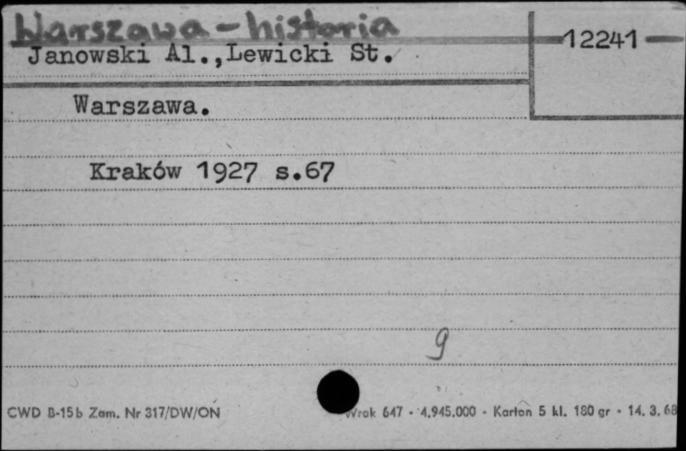 Warszawa - historia
12241
Janowski Al.,Lewicki St.
Warszawa.
Kraków 1927 s.67
9
CWD B-15b Zam. Nr 317/DW/ON Wrok 647 - 4.945.000 - Karton 5 kl. 180 gr - 14. 3. 68